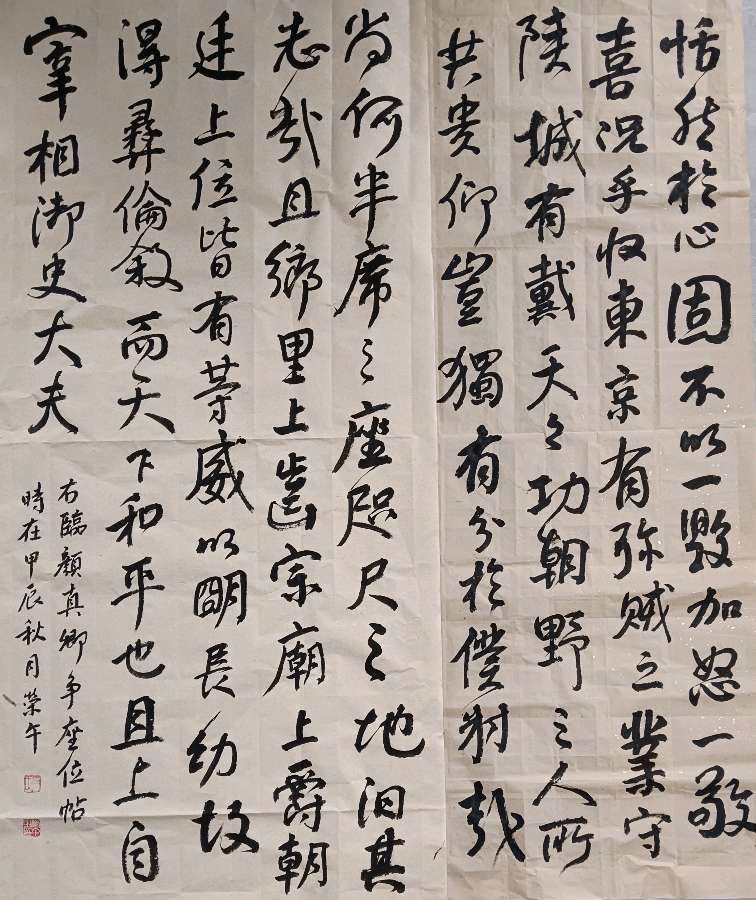 恬然於心固不以一毁加怒一敬
喜况乎收東京有殄賊之業守
陝城有戴天之功朝野之人所
共貴仰豈獨有分於僕射哉
尚何半席之座咫尺之地汩其
志哉且鄉里上齒宗廟上爵朝
廷上位皆有等威以明長幼故
得彝倫敘而天下和平也且上自
宰相御史大夫
右臨顏真卿争座位帖
時在甲辰秋月榮午